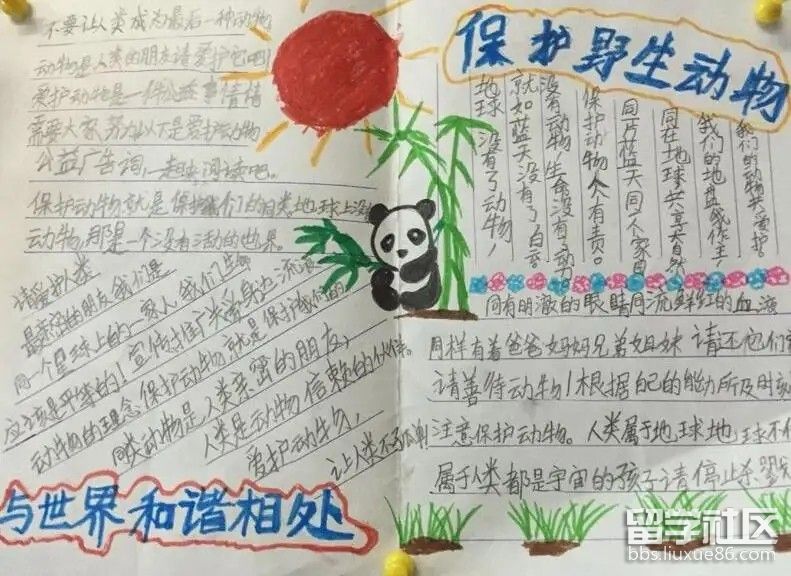 保护野生动物
不要让人类成为最后一种动物
动物是人类的朋友请爱护它吧!
爱护动物是一件公益事情
需要大家努力以下是爱护动物
公益广告词,一起来阅读吧。
保护动物就是保护我们的同类。地球上没
动物,那是一个没有活动的世界。
请爱护人类
最亲密的朋友 我们是
同一个星球上的一家人 我们生
应该是平等的!宣传推广关爱身边流浪
动物的理念 保护动物就是保护我们的
同类 动物是人类亲密的朋友,
人类是动物信赖的伙伴。
爱护动物,
让人类不孤单
与世界和谐相处
我们的动物共爱护。
我们的地盘我作主
同在地球共享自然
同一片蓝天同一个家园
保护动物人人有责。
没有动物,生命没有了动力
就如蓝天没有了白云
地球没有了动物!
同有明澈的眼睛同流鲜红的血液
同样有着爸爸妈妈兄弟姐妹 请还他们
请善待动物!根据自己的能力所及时刻
注意保护动物。人类属于地球地球不
属于人类都是宇宙的孩子请停止杀
留学社区
bbs.liuxue86.com